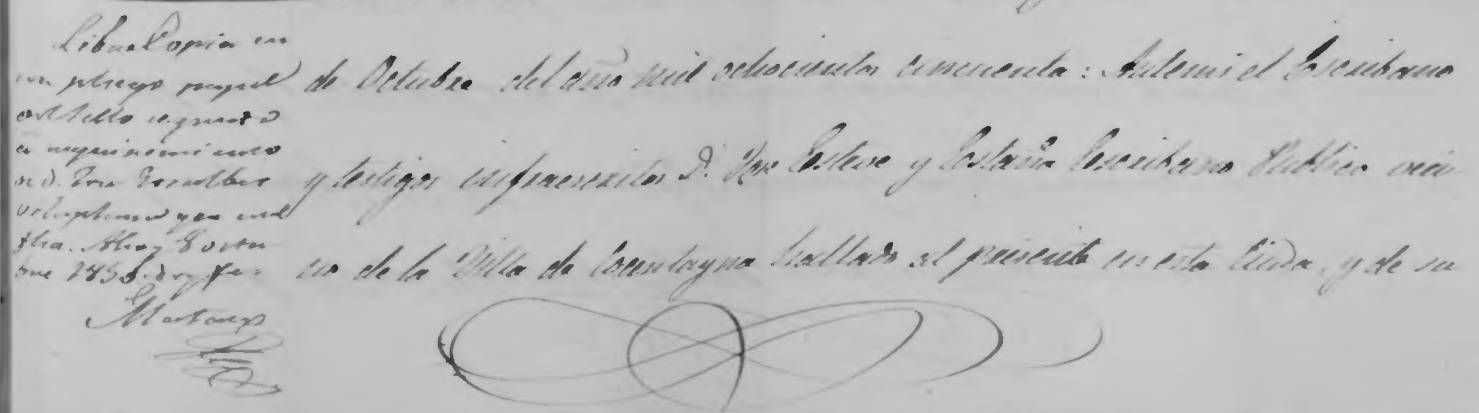 Libre Copia en
un pliego papel
del sello segundo
a requerimiento
de D.
fha. Alcoy 8 octu-
bre 1850. doy fee
de Octubre del año mil ochocientos cincuenta: Antemi el Escribano
y testigos infraescritos D. Jose Esteve y Escribano Publico veci-
no de la Villa de Cocentayna hallado al presente en esta Ciudad, y de su